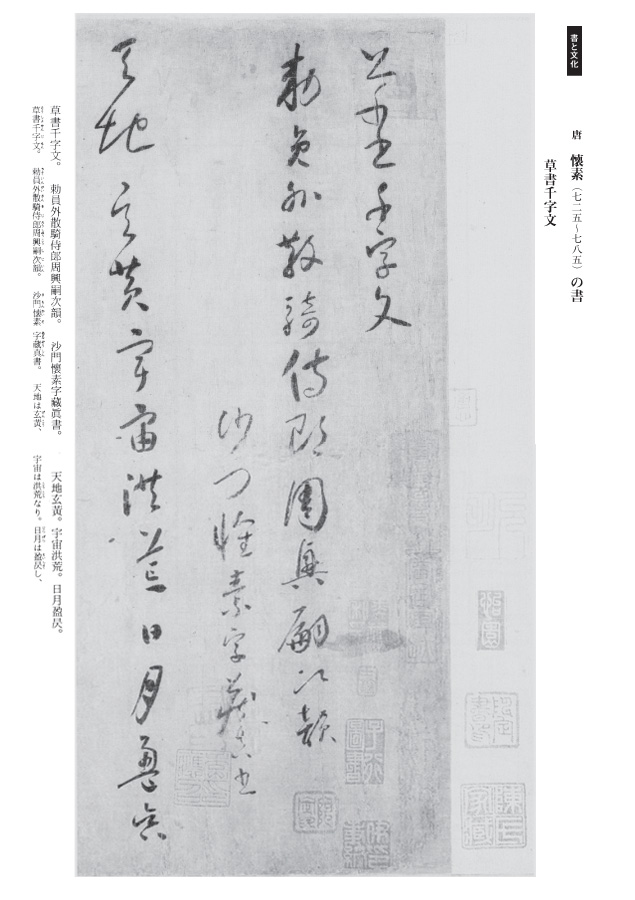 書と文化
唐 懐素（七二五～七八五）の書
草書千字文
草書千字文
勅員外散騎侍郎周興嗣次韻
沙門懐素字藏真書
天地玄黄宇宙洪荒日月盈昃
草書千字文。 勅員外散騎侍郎周興嗣次韻。 沙門懷素字藏眞書。 天地玄黄。宇宙洪荒。日月盈昃。
草書千字文。 勅員外散騎侍郎周興嗣次韻。 沙門懐素 字蔵真書。 天地は玄黄、 宇宙は洪荒なり。日月は盈昃し、